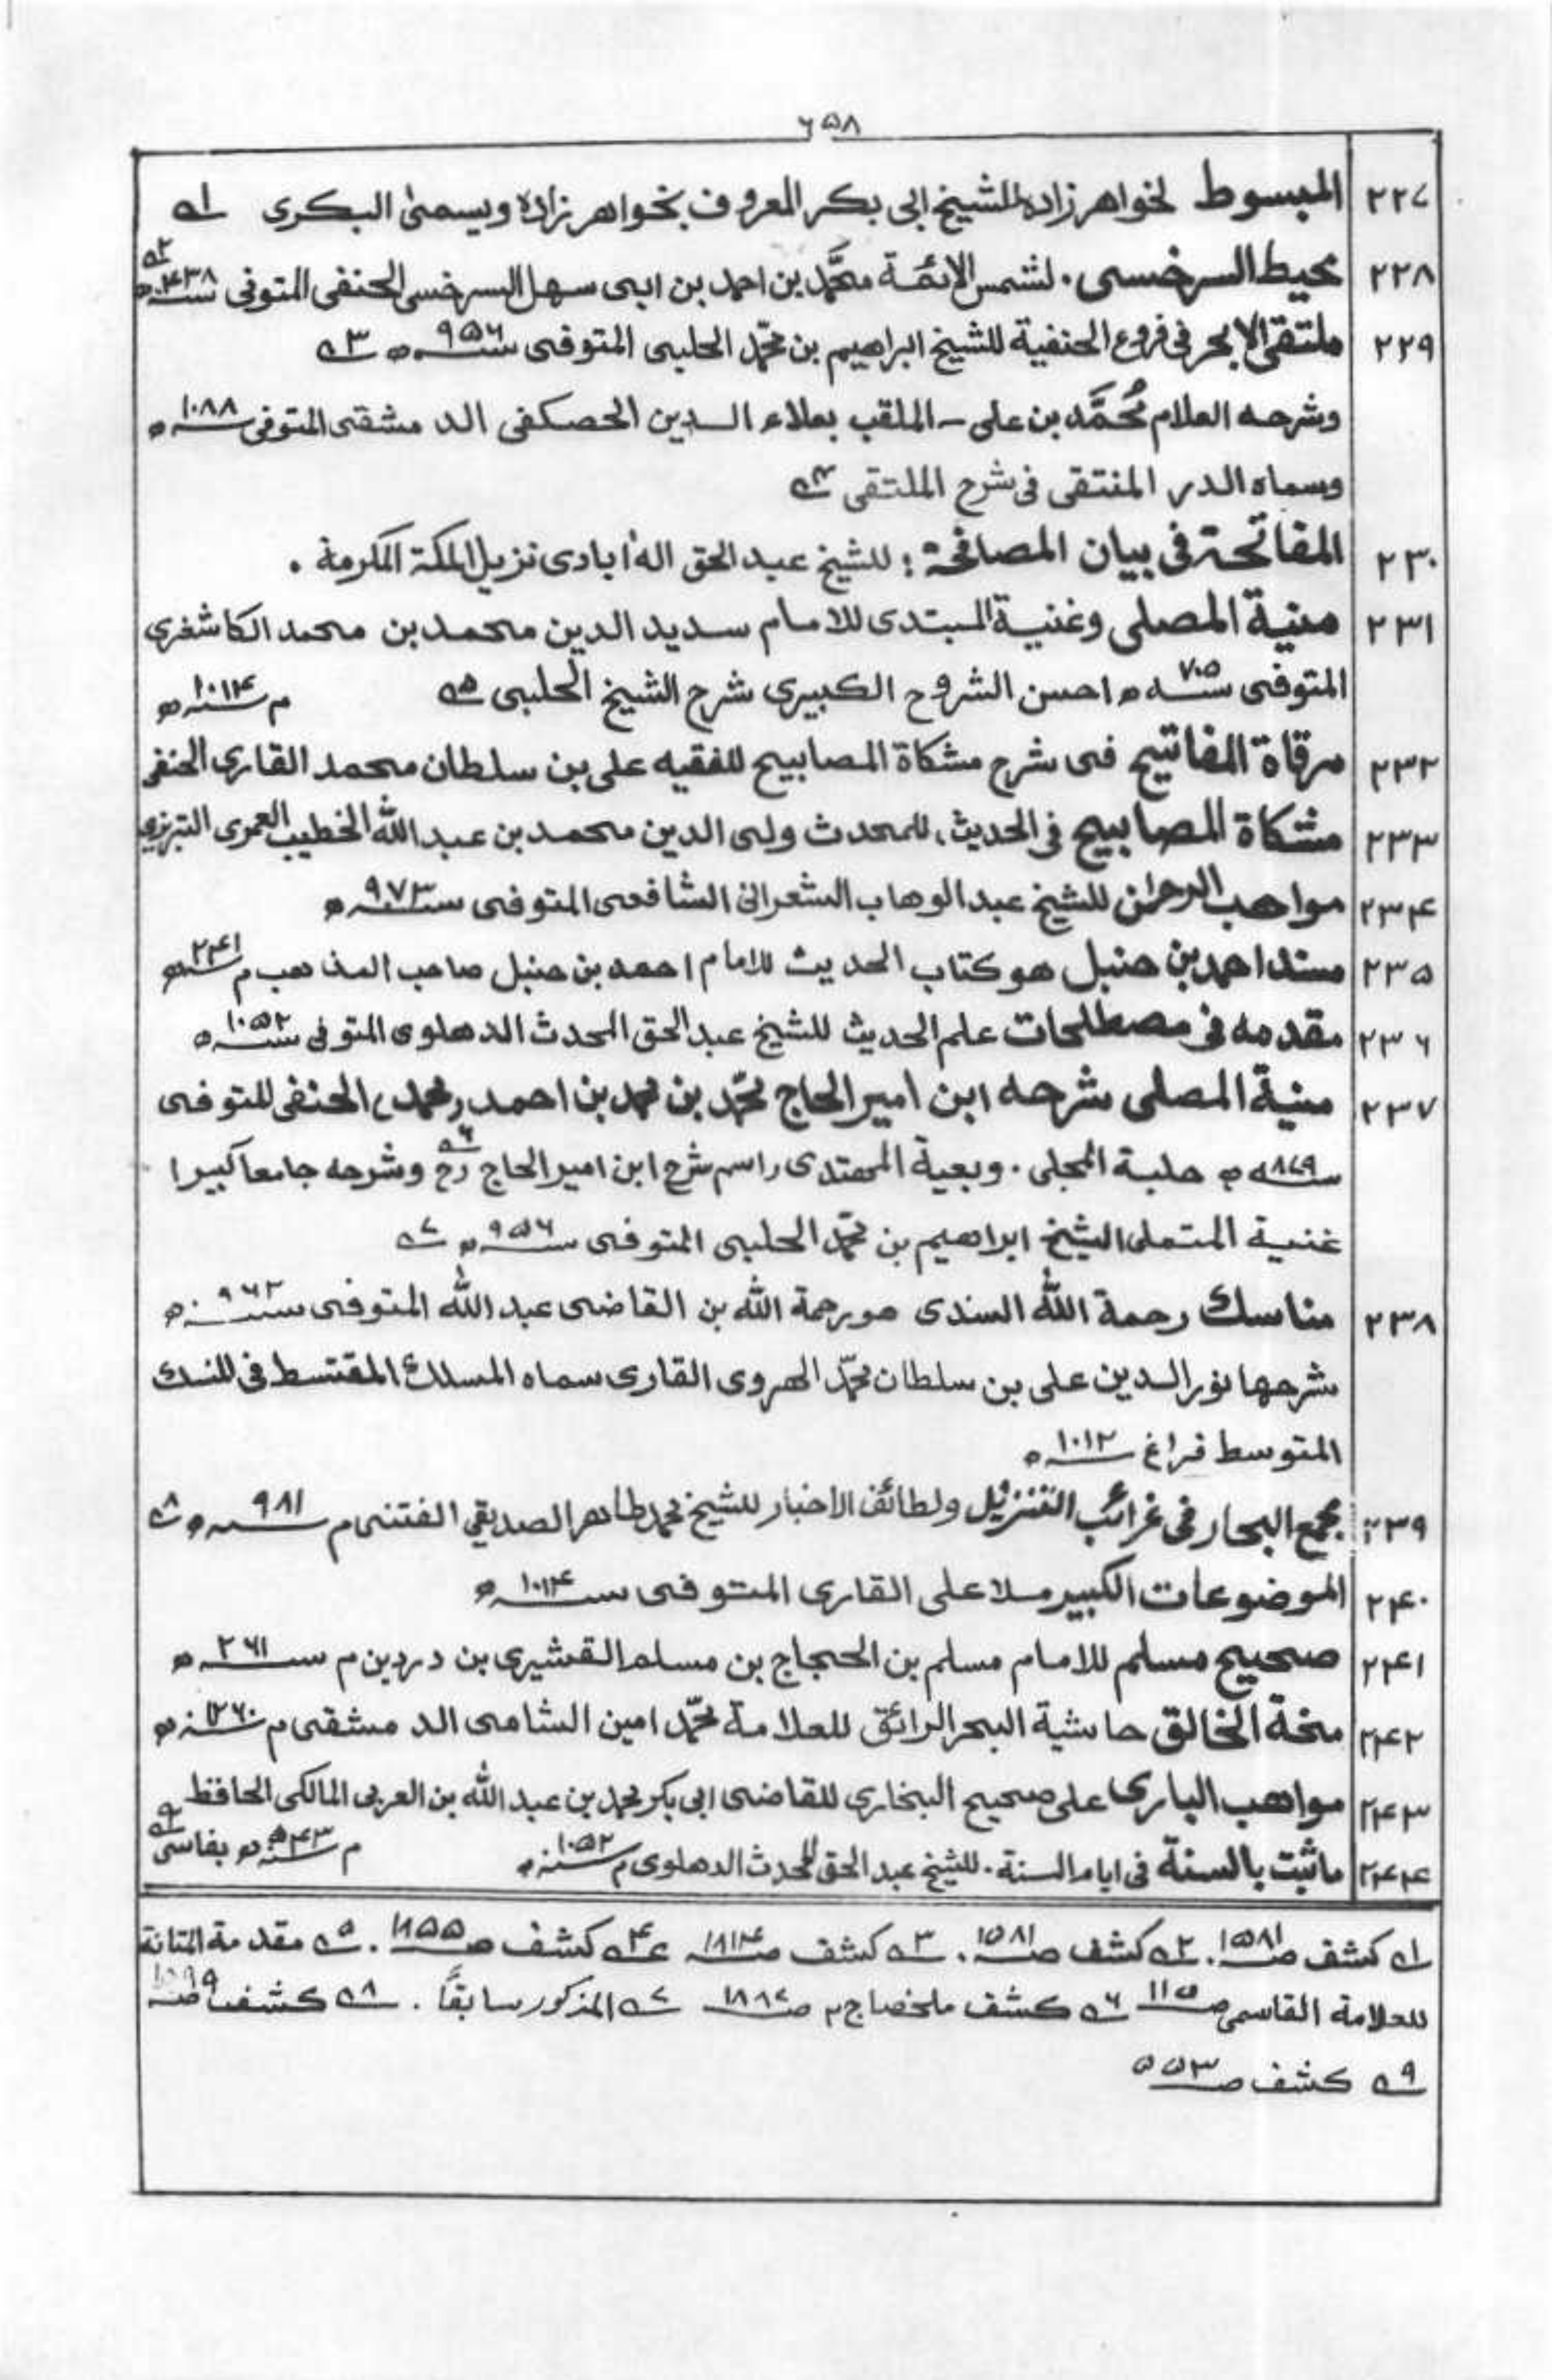 ۶۵۸
۲۲۷ المبسوط لخواهر زاده للشيخ ابى بكر المعروف بخواهر زاده ويسمىٰ البكرى ۱ـه
۲۲۸ محيط السرخسى . لشمس الائمة محمَّد بن احمد بن ابى سهل السرخسى الحنفى المتوفى سنه ۴۳۸ه ۲ـه
۲۲۹ ملتقى الابحر فى فروع الحنفية للشيخ ابراهيم بن محمّد الحلبى المتوفى سنه ۹۵۶ه ۳ـه
وشرحه العلام مُحمَّد بن على - الملقب بعلاء الدين الحصكفى الد مشقى المتوفى سنه ۱۰۸۸ه
وسماه الدر المنتقى فى شرح الملتقى ۴ـه
۲۳۰ المفاتحة فى بيان المصافحة : للشيخ عبد الحق اله ابادى نزيل المكة المكرمة .
۲۳۱ منية المصلى وغنية المبتدى للامام سديد الدين محمد بن محمد الكاشغرى
المتوفى سنه ۷۰۵ه احسن الشروح الكبيرى شرح الشيخ الحلبى ۵ـه م سنه ۱۰۱۴ه
۲۳۲ مرقاة المفاتيح فى شرح مشكاة المصابيح للفقيه على بن سلطان محمد القارى الحنفى
۲۳۳ مشكاة المصابيح فى الحديث، للمحدث ولى الدين محمد بن عبد الله الخطيب العمرى التبريزى
۲۳۴ مواهب الرحمٰن للشيخ عبد الوهاب الشعرانى الشافعى المتوفى سنه ۹۷۳ه
۲۳۵ مسند احمد بن حنبل هو كتاب الحديث للامام احمد بن حنبل صاحب المذاهب م سنه ۲۴۱ه
۲۳۶ مقدمه فى مصطلحات علم الحديث للشيخ عبد الحق المحدث الدهلوى المتوفى سنه ۱۰۵۲ه
۲۳۷ منية المصلى شرحه ابن امير الحاج محمّد بن محمد بن احمد (محمد) الحنفى المتوفى
سنه ۸۷۹ه حلبة المجلى . وبعية المهتدى (اسم شرح ابن امير الحاج رح ۶ـه وشرحه جامعا كبيرا
غنية المتملى الشيخ ابراهيم بن محمّد الحلبى المتوفى سنه ۹۵۶ه ۷ـه
۲۳۸ مناسك رحمة الله السندى هو رحمة الله بن القاضى عبد الله المتوفى سنه ۹۶۲ه
شرحها نور الدين على بن سلطان محمّد الهروى القارى سماه المسلك المقتسط فى المنسك
المتوسط فراغ سنه ۱۰۱۲ه
۲۳۹ مجمع البحار فى غرائب التنزيل ولطائف الاخبار للشيخ محمد طاهر الصديقى الفتنى م سنه ۹۸۱ه ۸ـه
۲۴۰ الموضوعات الكبير ملا على القارى المتوفى سنه ۱۰۱۴ه
۲۴۱ صحيح مسلم للامام مسلم بن الحجاج بن مسلم القشيرى بن دردين م سنه ۲۶۱ه
۲۴۲ منحة الخالق حاشية البحر الرائق للعلامة محمّد امين الشامى الد مشقى م سنه ۱۲۶۰ه
۲۴۳ مواهب البارى على صحيح البخارى للقاضى ابى بكر محمد بن عبد الله بن العربى المالكى الحافظ
م سنه ۵۴۳ه بفاسى ۹ـه
۲۴۴ ماثبت بالسنة فى ايام السنة . للشيخ عبد الحق المحدث الدهلوى م سنه ۱۰۵۲ه
۱ـه كشف صـ ۱۵۸۱. ۲ـه كشف صـ ۱۵۸۱. ۳ـه كشف صـ ۱۸۱۴ ۴ـه كشف صـ ۱۸۵۵. ۵ـه مقدمة المتانة
للعلامة القاسمى صـ ۱۱۵ ۶ـه كشف ملخصا ج۲ صـ ۱۸۸۷ ۷ـه المذكور سابقاً. ۸ـه كشف صـ ۱۵۹۹
۹ـه كشف صـ ۵۵۳